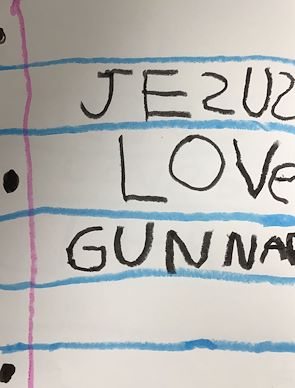 JESUS
LOVe
GUNNAR